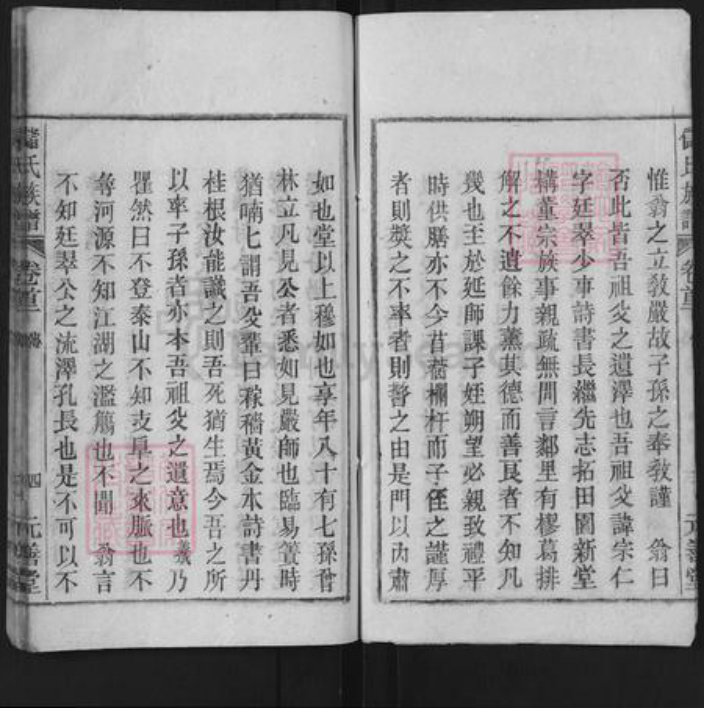 惟翁之立敎嚴故子孫之奉敎謹 翁曰
否此皆吾祖父之遺澤也吾祖父諱宗仁
字廷翠少事詩書長繼先志拓田園新堂
構董宗族事親疏無閒言鄰里有樛葛排
解之不遺餘力薰其德而善良者不知凡
幾也至於延師課子姪朔望必親致禮平
時供膳亦不今苜蓿欄杆而子侄之謹厚
者則奬之不率者則督之由是門以內肅
如也堂以上穆如也享年八十有七孫曾
林立凡見公者悉如見嚴師也臨易簀時
猶喃七謂吾父輩曰稼穡黃金水詩書丹
桂根汝能識之則吾死猶生焉今吾之所
以率子孫者亦本吾祖父之遺意也羲乃
瞿然曰不登泰山不知支阜之來脈也不
尋河源不知江湖之濫觴也不聞 翁言
不知廷翠公之流澤孔長也是不可以不
儲氏族譜 卷首 傳 四 元善堂